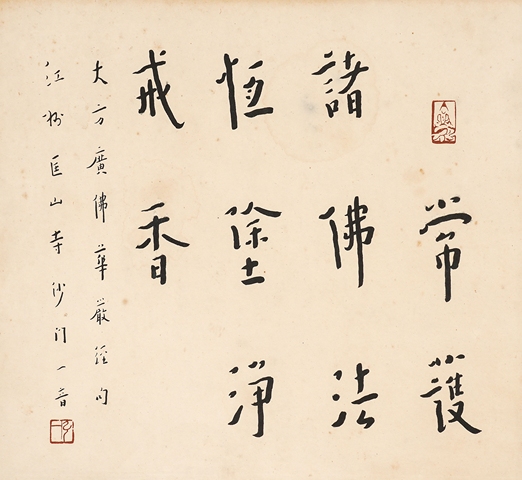 常護
諸佛法
恒塗淨
戒香
大方廣佛華嚴經句
江州匡山寺沙门一音